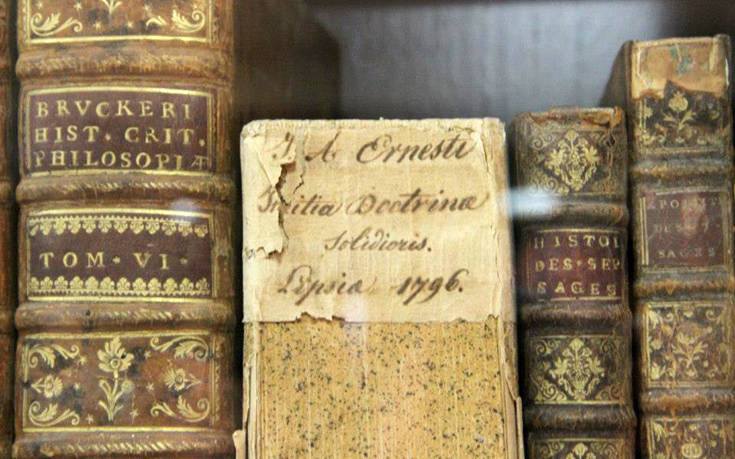 BRVCKERI
HIST. CRIT.
PHILOSOPIÆ
TOM. VI.
J. A. Ernesti
Initia Doctrinæ
Solidioris.
Lepsiæ 1796.
HISTOI
DES. SEP.
SAGES
DES
SAGES